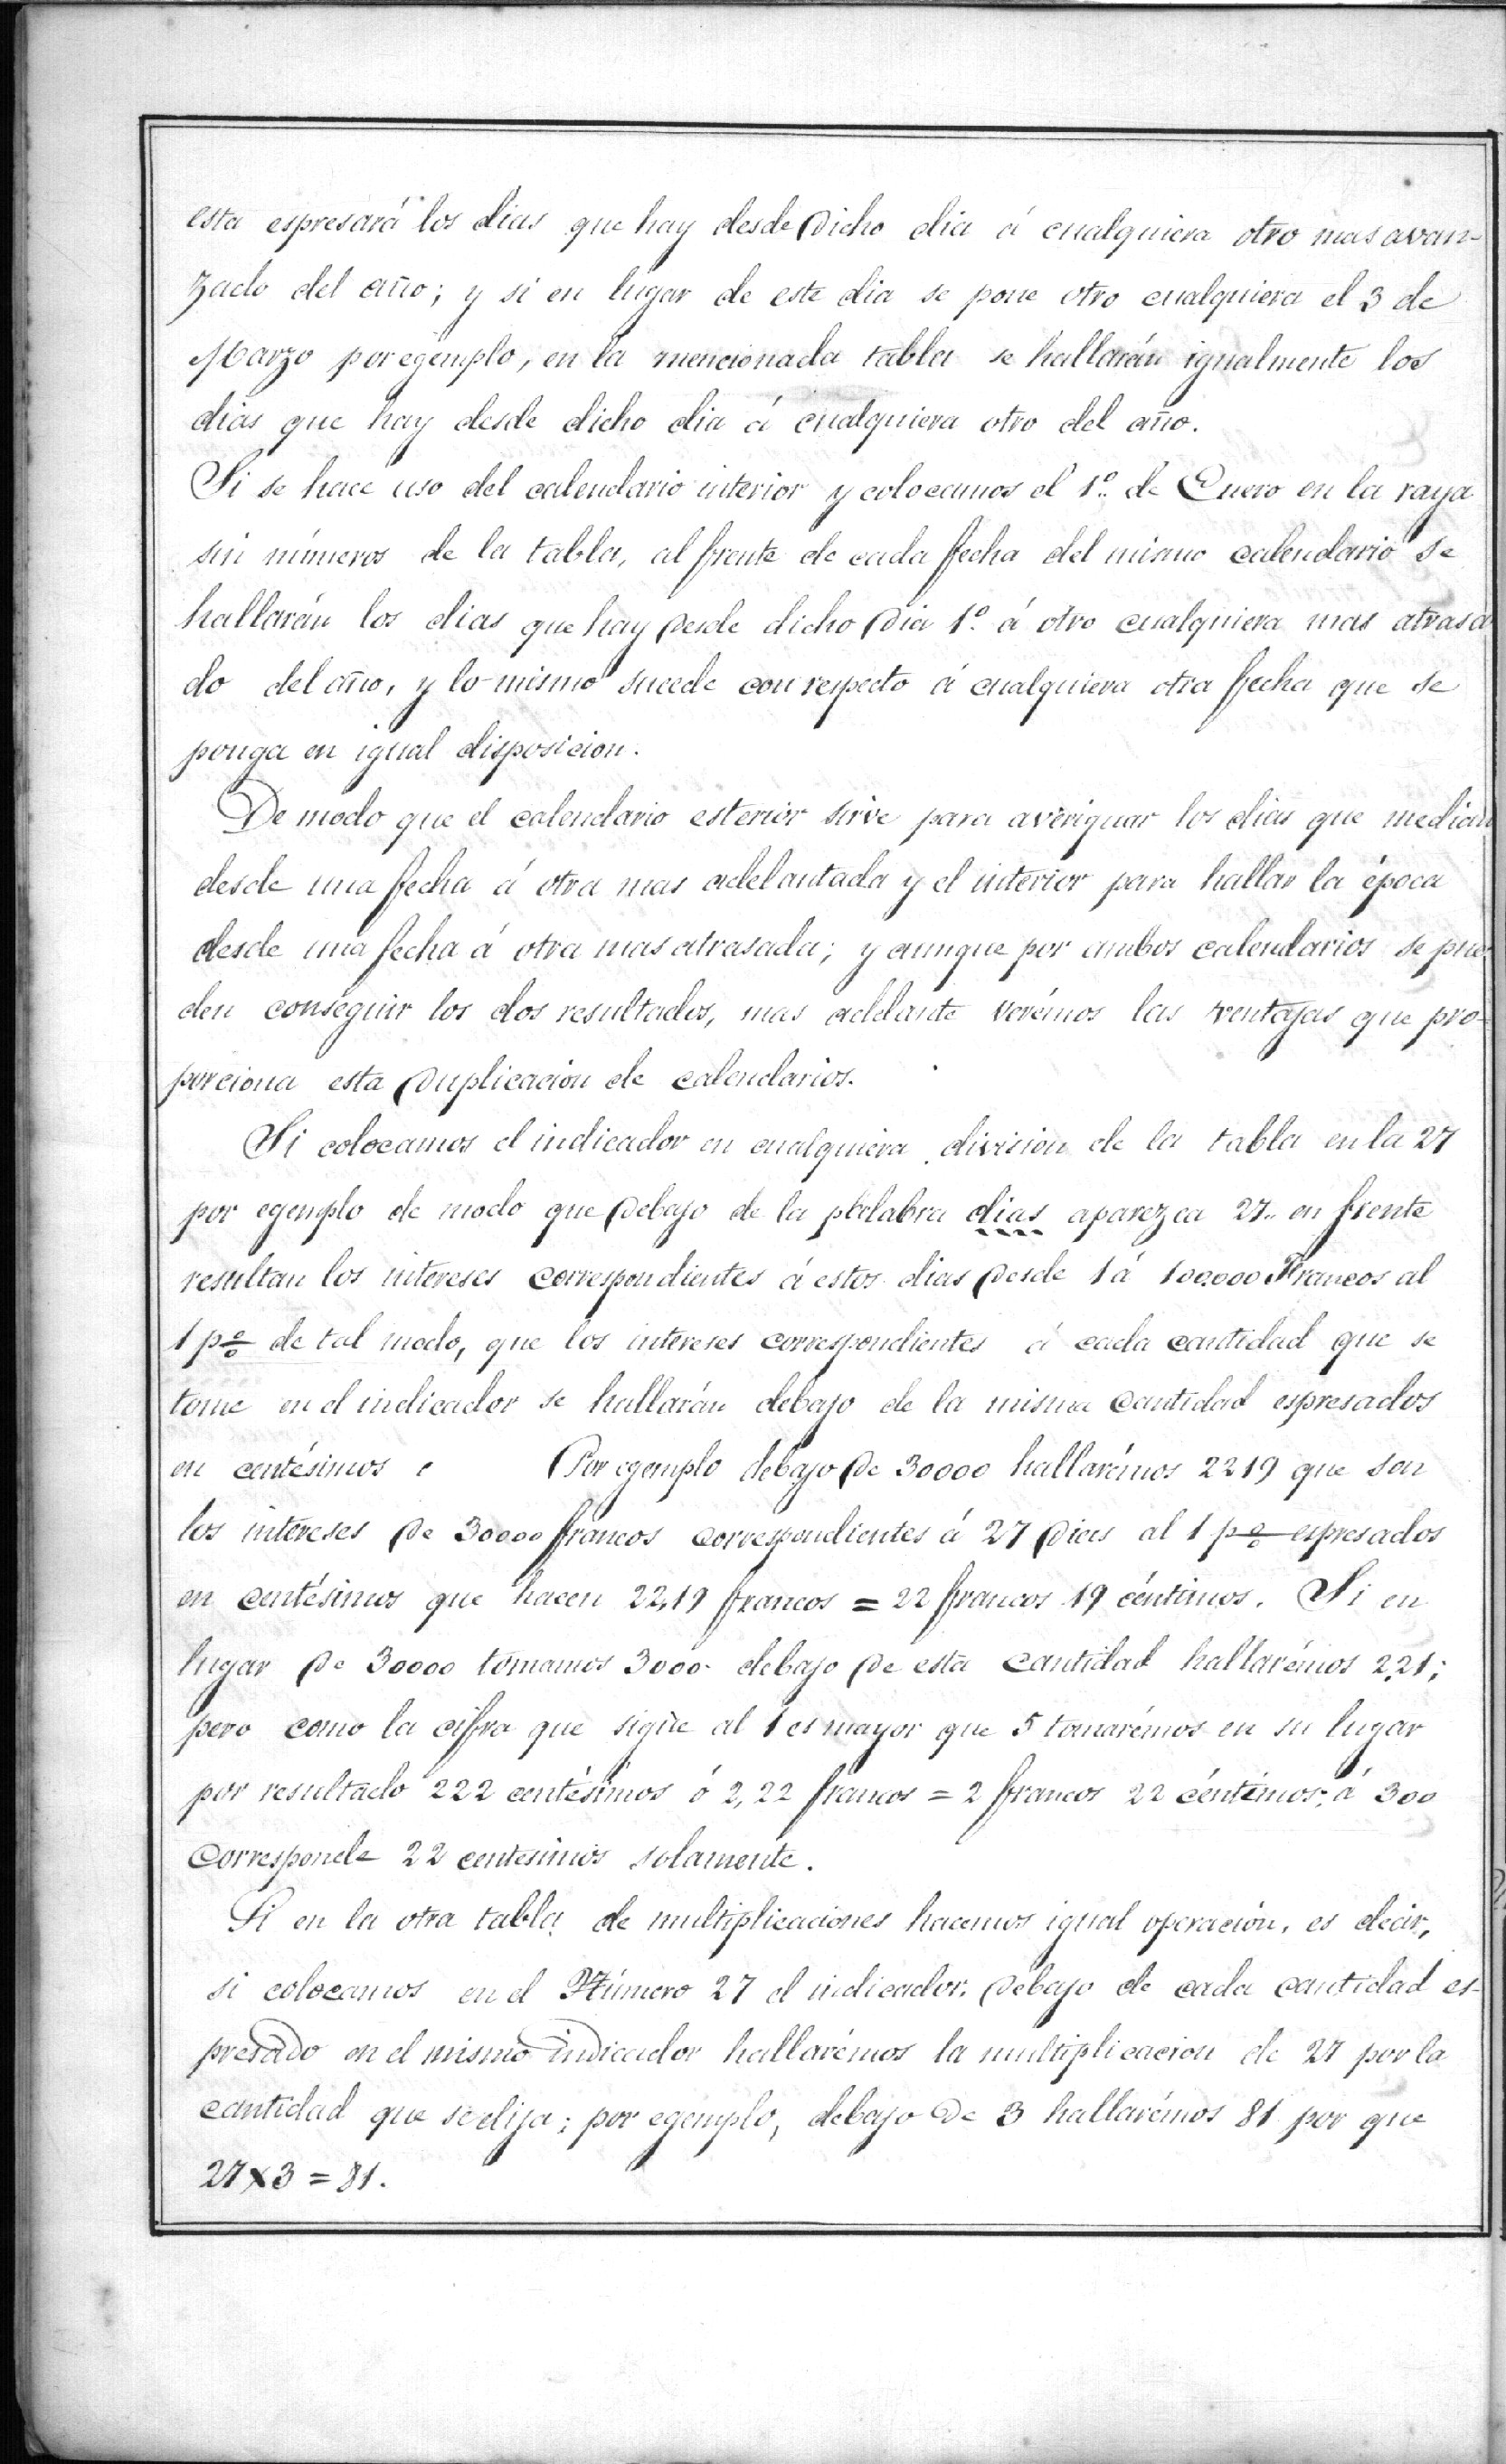 esta espresará los dias que hay desde dicho dia á cualquiera otro mas avan-
zado del año; y si en lugar de este dia se pone otro cualquiera el 3 de
Marzo por egemplo, en la mencionada tabla se hallarán igualmente los
dias que hay desde dicho dia á cualquiera otro del año.
Si se hace uso del calendario interior y colocamos el 1º de Enero en la raya
sin números de la tabla, al frente de cada fecha del mismo calendario se
hallarán los dias que hay desde dicho dia 1º á otro cualquiera mas atrasa
do del año, y lo mismo sucede con respecto á cualquiera otra fecha que se
ponga en igual disposicion.
De modo que el calendario esterior sirve para averiguar los dias que median
desde una fecha á otra mas adelantada y el interior para hallar la época
desde una fecha á otra mas atrasada; y aunque por ambos calendarios se pue
den conseguir los dos resultados, mas adelante verémos las ventajas que pro-
porciona esta duplicacion de calendarios.
Si colocamos el indicador en cualquiera division de la tabla en la 27
por egemplo de modo que debajo de la palabra dias aparezca 27.. en frente
resultan los intereses correspondientes á estos dias desde 1 á 100.000 Francos al
1 p% de tal modo, que los intereses correspondientes á cada cantidad que se
tome en el indicador se hallarán debajo de la misma cantidad espresados
en centésimos Por egemplo debajo de 30000 hallarémos 2219 que son
los intereses de 30000 francos correspondientes á 27 dias al 1 p% espresados
en centésimos que hacen 22,19 francos = 22 francos 19 céntimos. Si en
lugar de 30000 tomamos 3000 debajo de esta cantidad hallarémos 2,21;
pero como la cifra que sigue al 1 es mayor que 5 tomarémos en su lugar
por resultado 222 centésimos ó 2,22 francos = 2 francos 22 céntimos; á 300
corresponde 22 centesimos solamente.
Si en la otra tabla de multiplicaciones hacemos igual operación, es decir,
si colocamos en el Número 27 el indicador, debajo de cada cantidad es-
presado en el mismo indicador hallarémos la multiplicacion de 27 por la
cantidad que se elija; por egemplo, debajo de 3 hallarémos 81 por que
27 x 3 = 81.